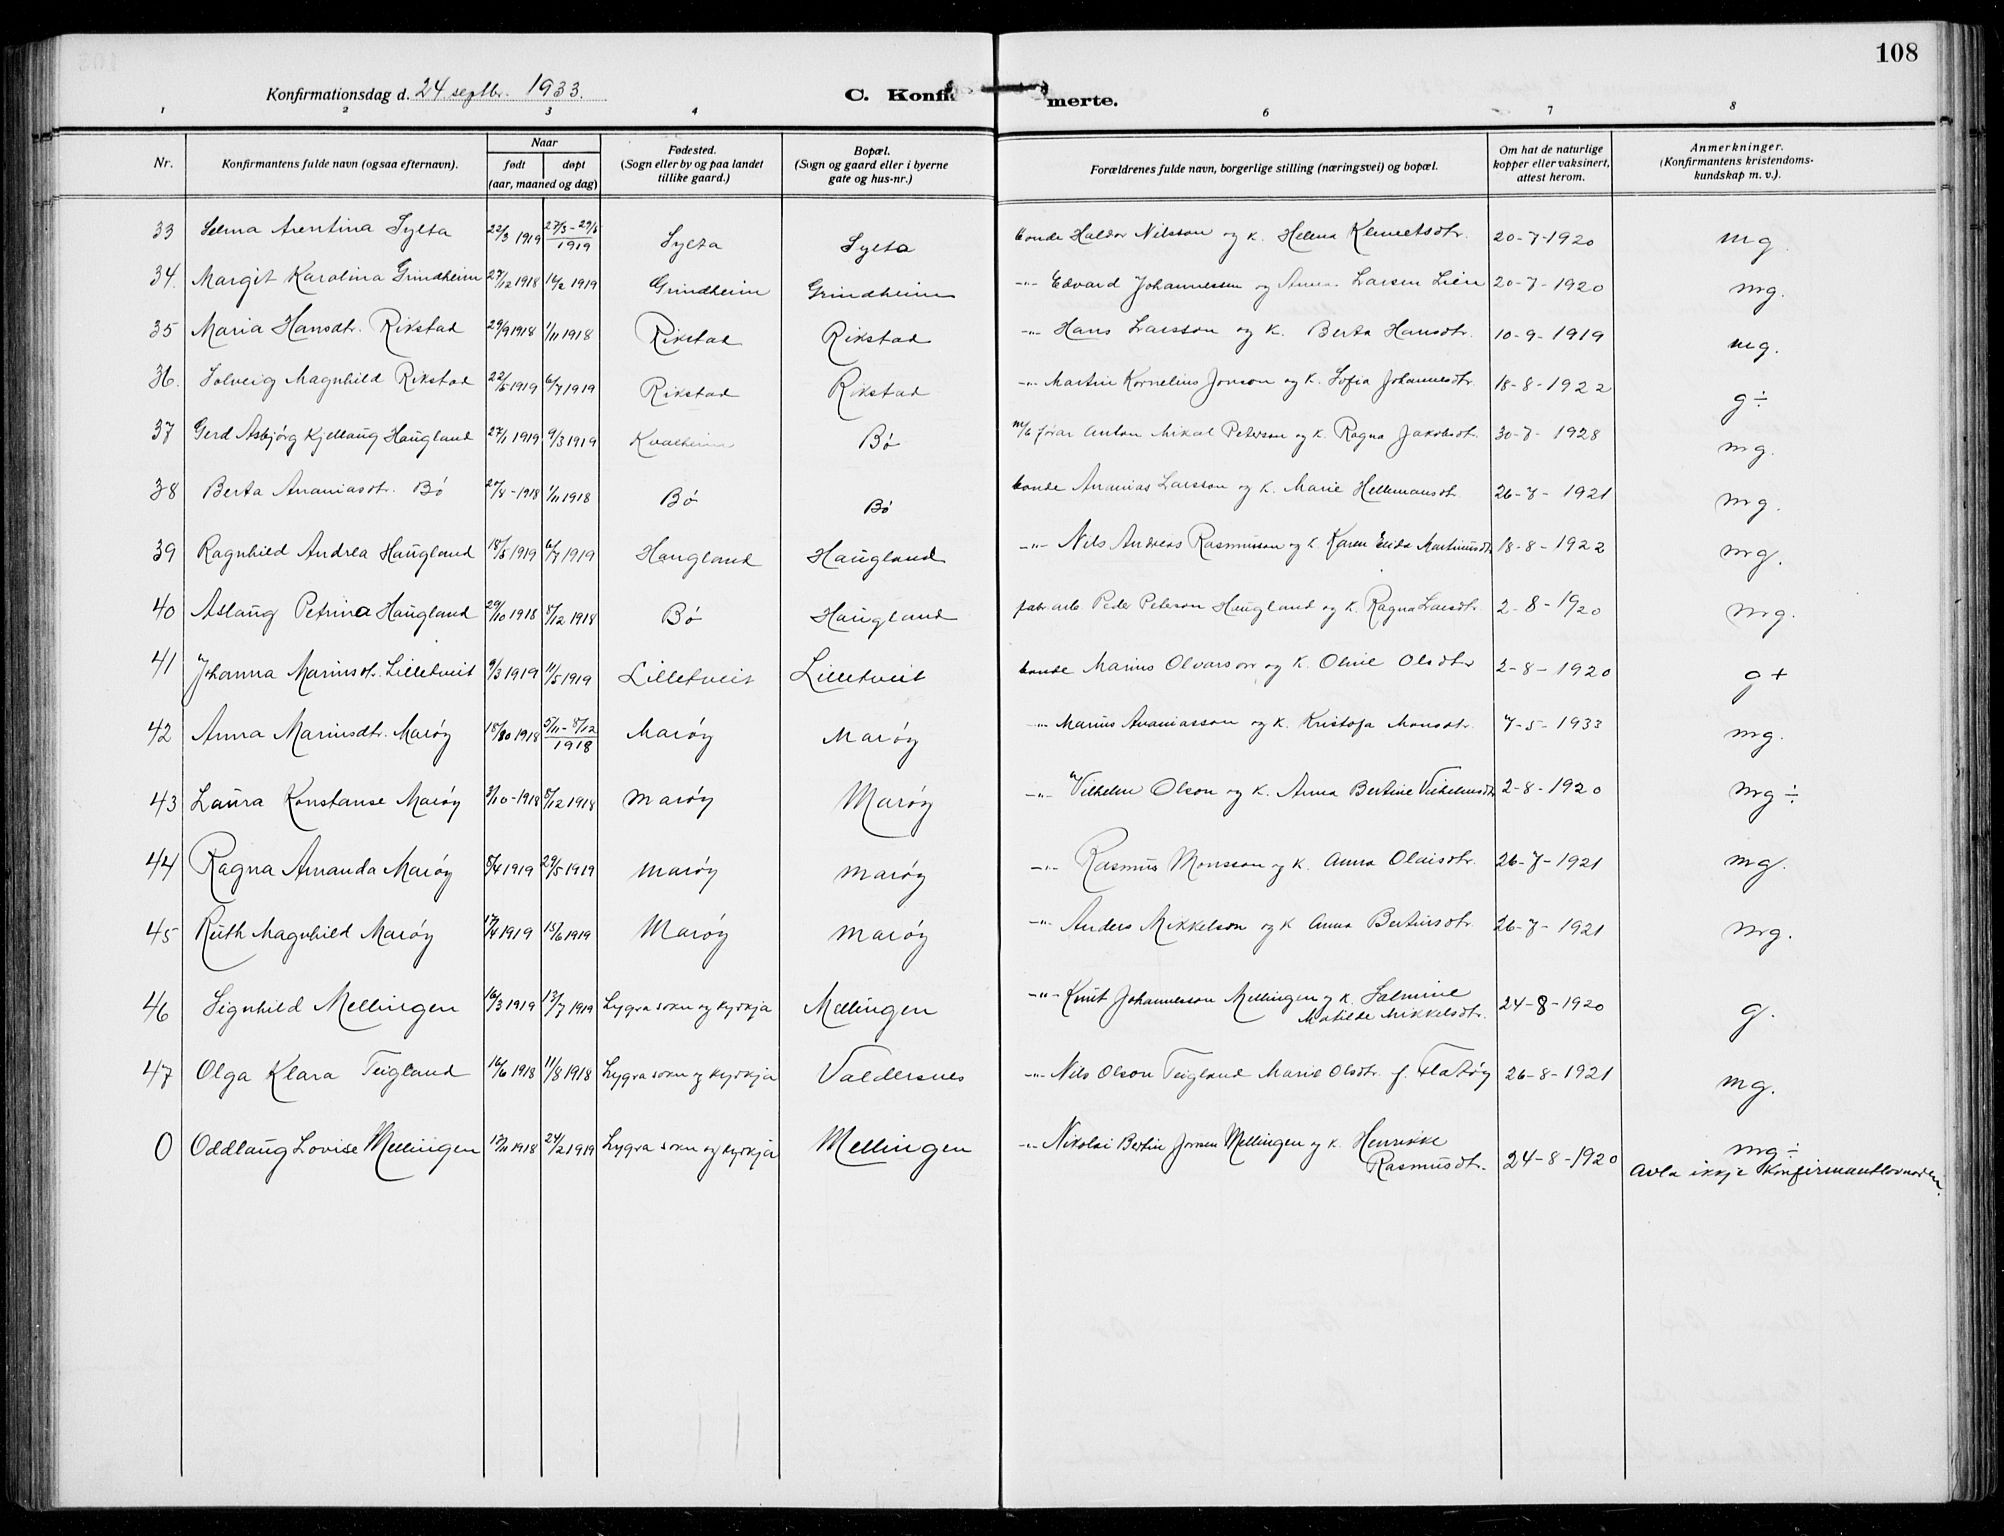 108
Konfirmationsdag d. 24 septbr. 1933.
C. Konfirmerte.
1 2 3 4 6 7 8
Nr. Konfirmantens fulde navn (ogsaa efternavn). Naar født døpt (aar, maaned og dag) Fødested. (Sogn eller by og paa landet tillike gaard.) Bopæl. (Sogn og gaard eller i byerne gate og hus-nr.) Forældrenes fulde navn, borgerlige stilling (næringsvei) og bopæl. Om hat de naturlige kopper eller vaksinert, attest herom. Anmerkninger. (Konfirmantens kristendomskundskap m. v.).
33 Selma Arentina Sylta 22/3 1919 27/3-29/5 1919 Sylta Sylta bonde Haldor Nilsson og k. Helena Klemetsdtr. 20-7-1920 mg.
34. Margit Karolina Grindheim 27/12 1918 16/2 1919 Grindheim Grindheim -"- Edvard Johannessen og Anna Larsen Lien 20-7-1920 mg.
35 Maria Hansdtr. Rikstad 29/9 1918 1/11 1918 Rikstad Rikstad -"- Hans Larsson og k. Berta Hansdtr. 10-9-1919 mg.
36. Solveig Magnhild Rikstad 22/5 1919 6/7 1919 Rikstad Rikstad -"- Martin Kornelius Jonson og k. Sofia Johannesdtr. 18-8-1922 g÷
37 Gerd Asbjørg Kjellaug Haugland 27/1 1919 9/3 1919 Kvalheim Bø m/b førar Anton Mikal Peterson og k. Ragna Jakobsdtr. 30-7-1928 mg.
38 Berta Ananiasdtr. Bø 1918 1/11 1918 Bø Bø bonde Ananias Larsson og k. Marie Hellemansdtr. 26-7-1921 mg.
39 Ragnhild Andrea Haugland 18/5 1919 6/7 1919 Haugland Haugland -"- Nils Andreas Rasmusson og k. Karen Elida Martinusdtr. 18-8-1922 mg.
40 Aslaug Petrina Haugland 29/10 1918 8/12 1918 Bø Haugland fabr.arb. Peder Peterson Haugland og k. Ragna Larsdtr. 2-8-1920 mg.
41 Johanna Mariusdt. Lilletveit 9/3 1919 11/5 1919 Lilletveit Lilletveit bonde Marius Olvarson og k. Oline Olsdtr 2-8-1920 g+
42 Anna Mariusdtr. Marøy 18/10 1918 5/11-8/12 1918 Marøy Marøy -"- Marius Ananiasson og k. Kristofa Monsdtr. 7-5-1933 mg.
43 Laura Konstanse Marøy 3/10-1918 8/12 1918 Marøy Marøy -"- Vilhelm Olson og k. Anna Bertine Vilhelmsdtr 2-8-1920 mg÷
44 Ragna Amanda Marøy 8/4 1919 29/5 1919 Marøy Marøy -"- Rasmus Monsson og k. Anna Olaisdtr. 26-7-1921 mg.
45 Ruth Magnhild Marøy 17/4 1919 15/6 1919 Marøy Marøy -"- Anders Mikkelson og k Anna Bertinsdtr. 26-7-1921 mg.
46 Signhild Mellingen 16/3 1919 13/7 1919 Lygra sokn og kyrkja Mellingen -"- Knut Johannesson Mellingen og k. Salmine
Matilde Mikkelsdtr. 24-8-1920 g.
47 Olga Klara Teigland 16/6 1918 11/8 1918 Lygra sokn og kyrkja Valdersnes -"- Nils Olson Teigland Marie Olsdtr. f. Flatøy 26-8-1921 mg.
0 Oddlaug Lovise Mellingen 1918 24/2 1919 Lygra sokn og kyrkja Mellingen -"- Nikolai Bertin Jonsen Mellingen og k. Henrikke
Rasmusdtr. 24-8-1920 mg÷
Avla ikkje Konfirmantlovnaden.